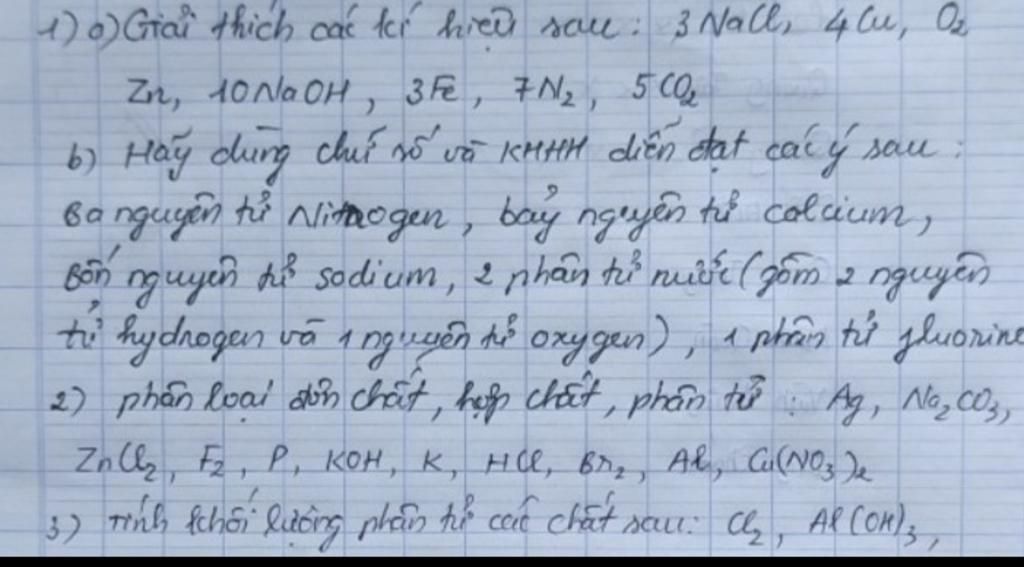 1) a) Giải thích các kí hiệu sau: 3NaCl, 4Cu, O₂
Zn, 10NaOH, 3Fe, 7N₂, 5CO₂
b) Hãy dùng chữ số và KHHH diễn đạt các ý sau:
Ba nguyên tử Nitrogen, bảy nguyên tử calcium,
Bốn nguyên tử sodium, 2 phân tử nước (gồm 2 nguyên
tử hydrogen và 1 nguyên tử oxygen), 1 phân tử fluorine
2) phân loại đơn chất, hợp chất, phân tử: Ag, Na₂CO₃,
ZnCl₂, F₂, P, KOH, K, HCl, Br₂, Al, Cu(NO₃)₂
3) Tính khối lượng phân tử các chất sau: Cl₂, Al(OH)₃,